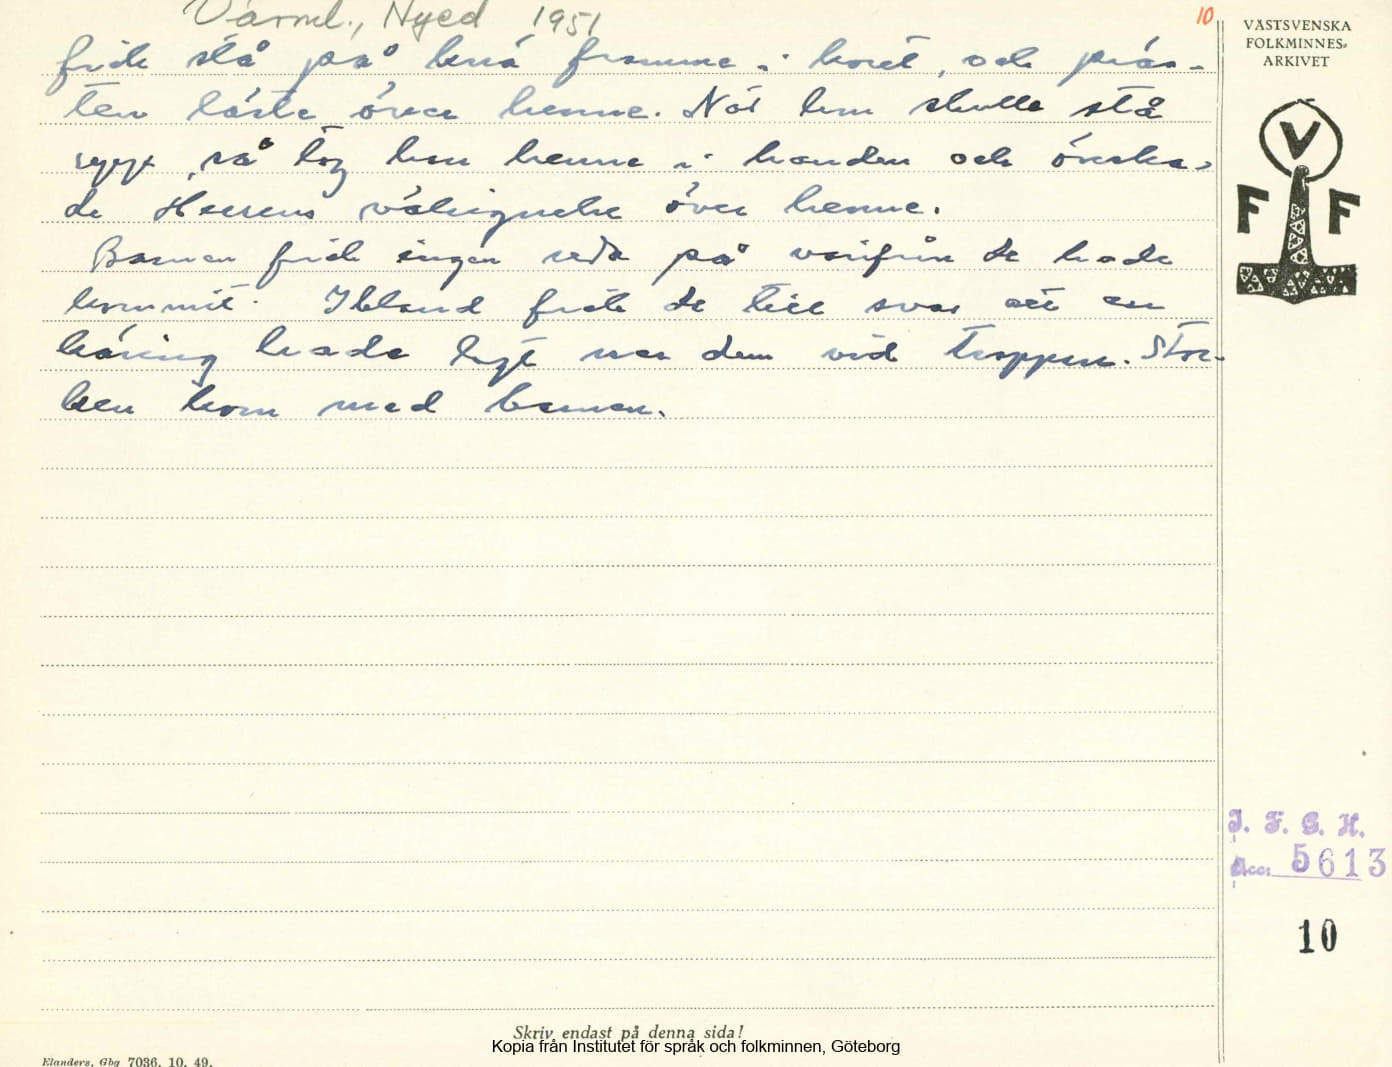 Värml., Nyed 1951
10
fick stå på knä framme i koret, och präs-
ten läste över henne. När hon skulle stå
upp, så tog han henne i handen och önska-
de Herrens välsignelse över henne.
Barnen fick ingen reda på varifrån de hade
kommit. Ibland fick de till svar att en
käring hade lagt ner dem vid trappen. Stor-
ken kom med barnen.
VÄSTSVENSKA
FOLKMINNES-
ARKIVET
V
F F
I. F. G. H.
Acc. 5613
10
Skriv endast på denna sida!
Kopia från Institutet för språk och folkminnen, Göteborg
Elanders, Gbg 7036. 10. 49.